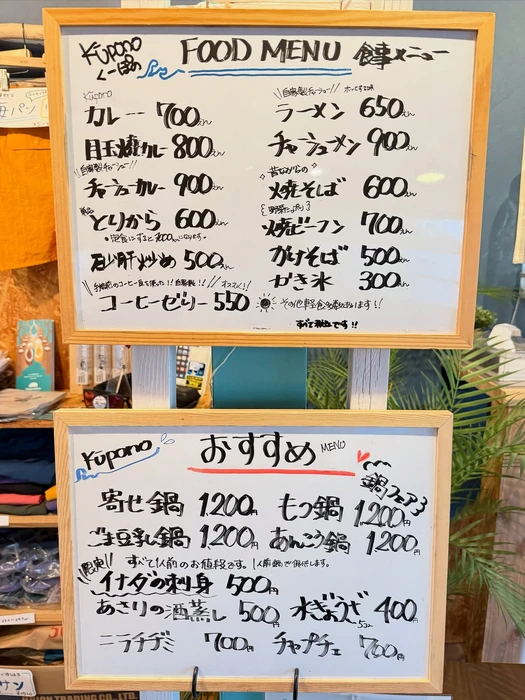 Kupono
くーぽの
FOOD MENU 食事メニュー
Kupono
カレー 700えん
目玉焼カレー 800えん
自家製チャーシュー!!
チャーシューカレー 900えん
単品
とりから 600えん
砂肝炒め 500えん
コーヒーゼリー 550
自家製チャーシュー!!
ラーメン 650えん
チャーシューメン 900えん
昔ながらの
焼きそば 600えん
野菜たっぷり
焼ビーフン 700えん
かけそば 500えん
かき氷 300えん
その他軽食も
すべて税込です!!
Kupono
おすすめ MENU
鍋フェア
寄せ鍋 1,200円 もつ鍋 1,200円
ごま豆乳鍋 1,200円 あんこう鍋 1,200円
すべて1人前のお値段です。1人前鍋で提供します。
限定
イナダの刺身 500円
あさりの酒蒸し 500円 水ぎょうざ 400円
5コ
ニラチヂミ 700円 チャプチェ 700円
サン